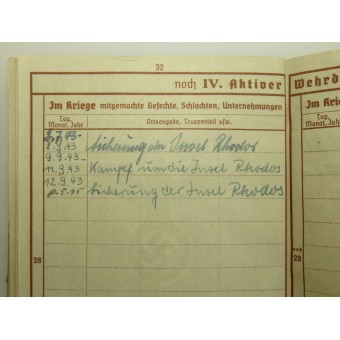 32
noch IV. Aktiver Wehrd
Im Kriege mitgemachte Gefechte, Schlachten, Unternehmungen
Im Kri
Tag, Monat, Jahr
Ortsangabe, Truppenteil usw.
Tag, Monat, Jahr
8.9.43 Sicherung der Insel Rhodos
9.9.43-
11.9.43 Kampf um die Insel Rhodos
12.9.43 Sicherung der Insel Rhodos
28
noch 28